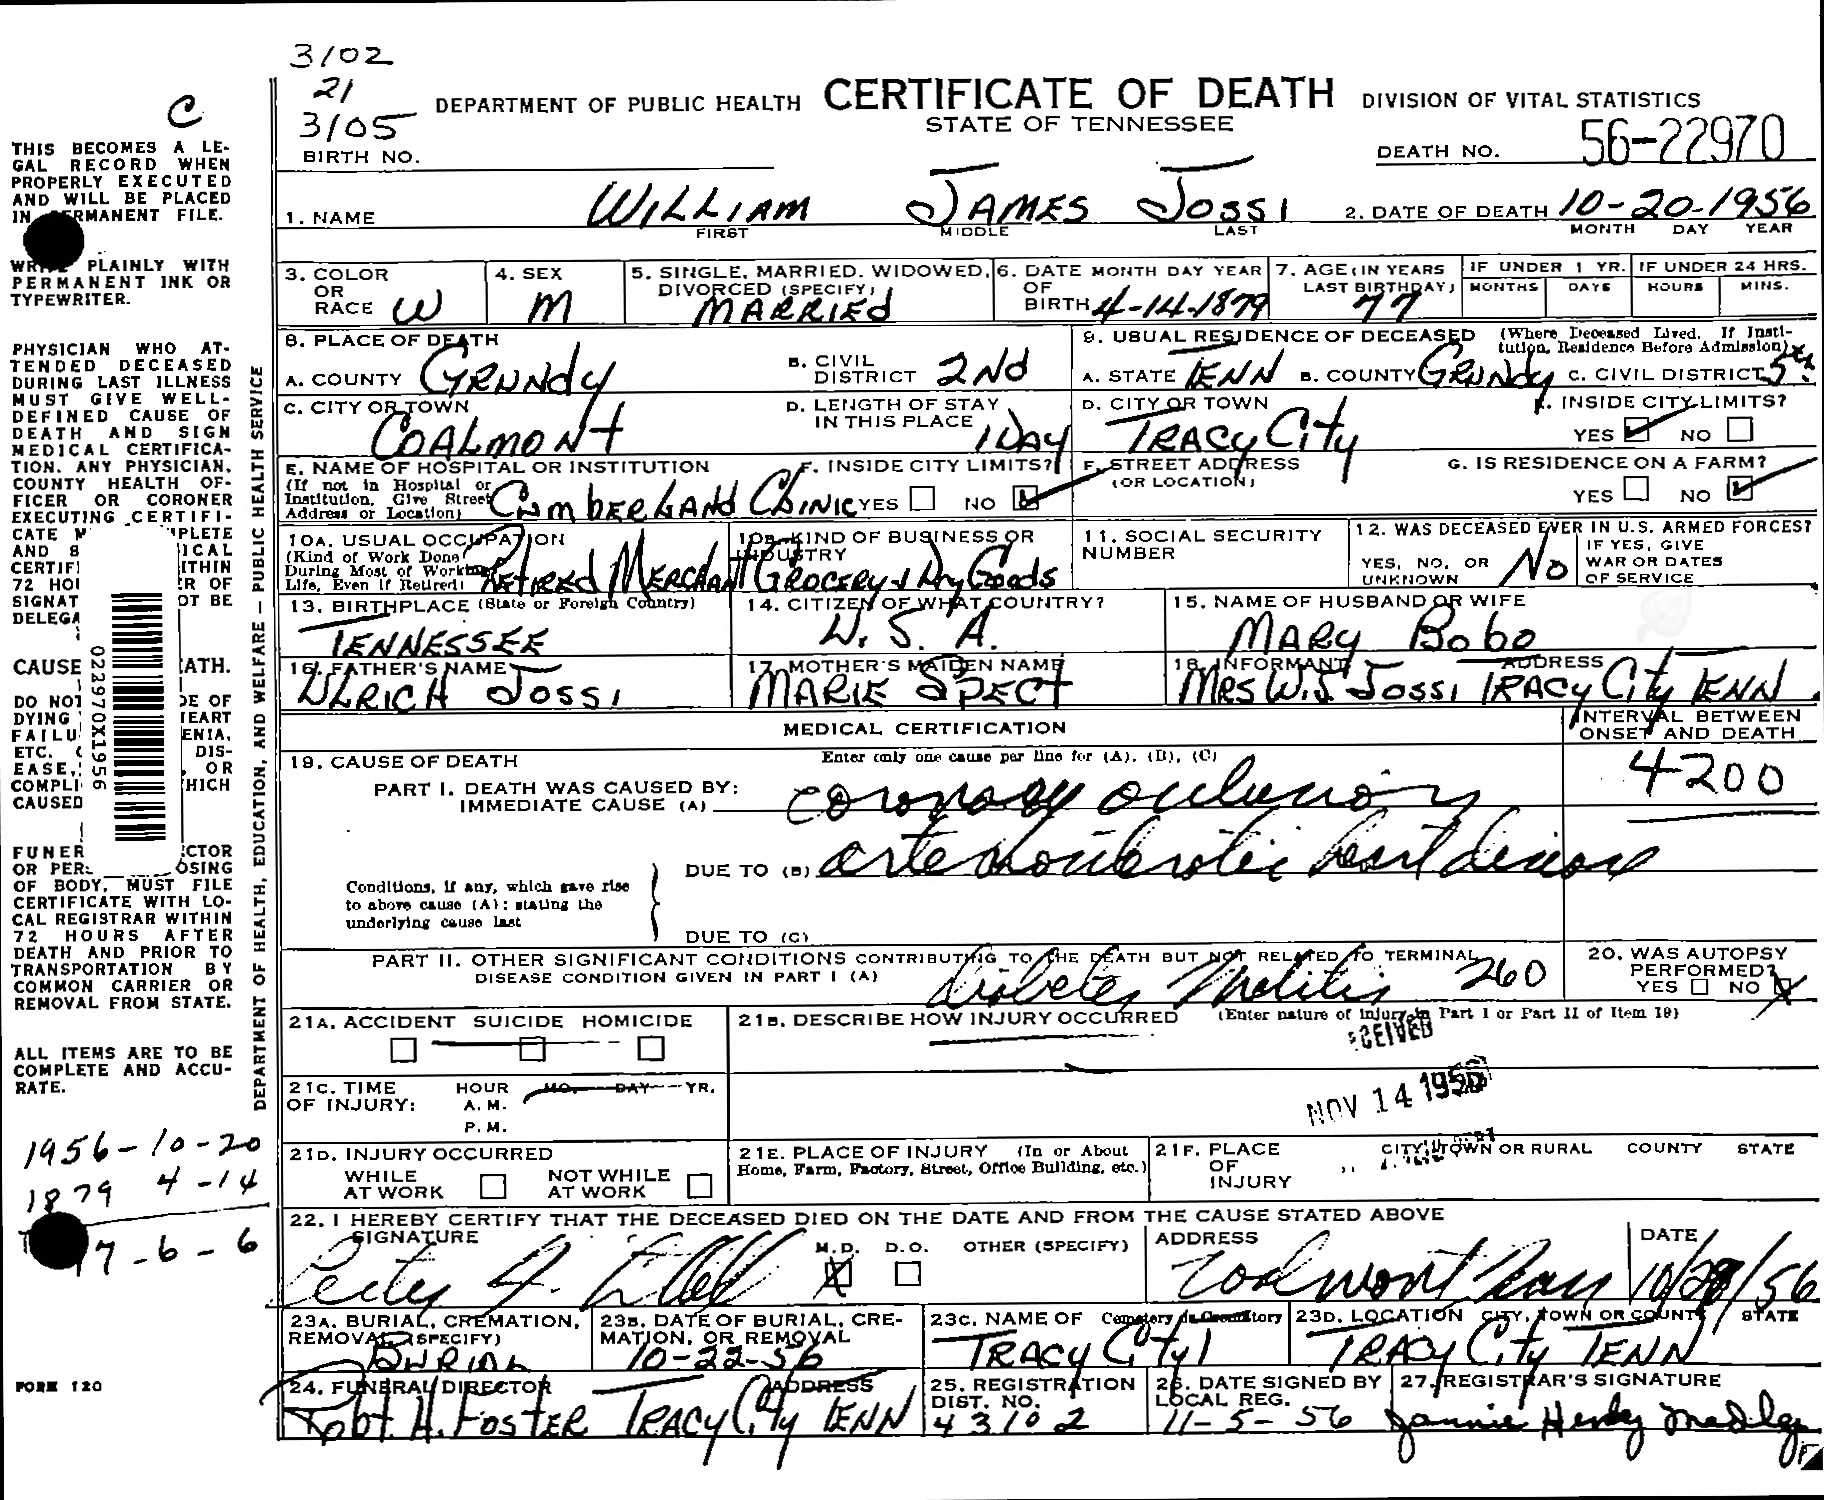 3102
21
3105
C
DEPARTMENT OF PUBLIC HEALTH CERTIFICATE OF DEATH DIVISION OF VITAL STATISTICS
STATE OF TENNESSEE
BIRTH NO.
DEATH NO. 56-22970
1. NAME WILLIAM JAMES JOSSI 2. DATE OF DEATH 10-20-1956
FIRST MIDDLE LAST MONTH DAY YEAR
3. COLOR OR RACE W
4. SEX M
5. SINGLE, MARRIED, WIDOWED, DIVORCED (SPECIFY) MARRIEd
6. DATE OF BIRTH MONTH DAY YEAR 4-14-1879
7. AGE (IN YEARS LAST BIRTHDAY) 77
IF UNDER 1 YR. MONTHS DAYS
IF UNDER 24 HRS. HOURS MINS.
8. PLACE OF DEATH
A. COUNTY GRUNDY
B. CIVIL DISTRICT 2Nd
9. USUAL RESIDENCE OF DECEASED (Where Deceased Lived. If Institution, Residence Before Admission)
A. STATE TENN B. COUNTY GRUNDY C. CIVIL DISTRICT 5th
C. CITY OR TOWN COALMONT
D. LENGTH OF STAY IN THIS PLACE 1 DAY
D. CITY OR TOWN TRACY CITY
E. INSIDE CITY LIMITS? YES NO
E. NAME OF HOSPITAL OR INSTITUTION (If not in Hospital or Institution, Give Street Address or Location) CUMBERLAND CLINIC
F. INSIDE CITY LIMITS? YES NO
F. STREET ADDRESS (OR LOCATION)
G. IS RESIDENCE ON A FARM? YES NO
10A. USUAL OCCUPATION (Kind of Work Done During Most of Working Life, Even if Retired) RETIRED MERCHANT
10B. KIND OF BUSINESS OR INDUSTRY GROCERY & DRY GOODS
11. SOCIAL SECURITY NUMBER
12. WAS DECEASED EVER IN U.S. ARMED FORCES?
YES, NO, OR UNKNOWN NO
IF YES, GIVE WAR OR DATES OF SERVICE
13. BIRTHPLACE (State or Foreign Country) TENNESSEE
14. CITIZEN OF WHAT COUNTRY? U. S. A.
15. NAME OF HUSBAND OR WIFE MARY BOBO
16. FATHER'S NAME ULRICH JOSSI
17. MOTHER'S MAIDEN NAME MARIE SPECT
18. INFORMANT ADDRESS MRS W.J JOSSI TRACY CITY TENN.
MEDICAL CERTIFICATION
INTERVAL BETWEEN ONSET AND DEATH
19. CAUSE OF DEATH Enter only one cause per line for (A), (B), (C)
PART I. DEATH WAS CAUSED BY:
IMMEDIATE CAUSE (A) coronary occlusion 4200
DUE TO (B) arteriosclerotic heart disease
Conditions, if any, which gave rise
to above cause (A); stating the
underlying cause last
DUE TO (C)
PART II. OTHER SIGNIFICANT CONDITIONS CONTRIBUTING TO THE DEATH BUT NOT RELATED TO TERMINAL
DISEASE CONDITION GIVEN IN PART I (A) diabetes Melitis 260
20. WAS AUTOPSY PERFORMED? YES NO
21A. ACCIDENT SUICIDE HOMICIDE
21B. DESCRIBE HOW INJURY OCCURRED (Enter nature of injury in Part I or Part II of Item 19)
NOV 14 1956
21C. TIME OF INJURY: HOUR MO. DAY YR.
A. M.
P. M.
21D. INJURY OCCURRED
WHILE AT WORK NOT WHILE AT WORK
21E. PLACE OF INJURY (In or About Home, Farm, Factory, Street, Office Building, etc.)
21F. PLACE OF INJURY CITY, TOWN OR RURAL COUNTY STATE
22. I HEREBY CERTIFY THAT THE DECEASED DIED ON THE DATE AND FROM THE CAUSE STATED ABOVE
SIGNATURE M.D. D.O. OTHER (SPECIFY)
ADDRESS Coalmont Tenn
DATE 10/28/56
23A. BURIAL, CREMATION, REMOVAL (SPECIFY) BURIAL
23B. DATE OF BURIAL, CREMATION, OR REMOVAL 10-22-56
23C. NAME OF Cemetery or Crematory TRACY CITY
23D. LOCATION CITY, TOWN OR COUNTY STATE TRACY CITY TENN
24. FUNERAL DIRECTOR ADDRESS Robt. H. FOSTER TRACY CITY TENN
25. REGISTRATION DIST. NO. 43102
26. DATE SIGNED BY LOCAL REG. 11-5-56
27. REGISTRAR'S SIGNATURE Jannie Henley Medley
THIS BECOMES A LE-
GAL RECORD WHEN
PROPERLY EXECUTED
AND WILL BE PLACED
IN PERMANENT FILE.
WRITE PLAINLY WITH
PERMANENT INK OR
TYPEWRITER.
PHYSICIAN WHO AT-
TENDED DECEASED
DURING LAST ILLNESS
MUST GIVE WELL-
DEFINED CAUSE OF
DEATH AND SIGN
MEDICAL CERTIFICA-
TION. ANY PHYSICIAN,
COUNTY HEALTH OF-
FICER OR CORONER
EXECUTING CERTIFI-
CATE
AND
72 OF
BE
CAUSE
DO NOT OF
DYING
ETC. DIS-
EASE, OR
CAUSED
022970X1956
OF BODY, MUST FILE
CERTIFICATE WITH LO-
CAL REGISTRAR WITHIN
72 HOURS AFTER
DEATH AND PRIOR TO
TRANSPORTATION BY
COMMON CARRIER OR
REMOVAL FROM STATE.
ALL ITEMS ARE TO BE
COMPLETE AND ACCU-
RATE.
1956-10-20
1879 4-14
7-6-6
FORM 120
DEPARTMENT OF HEALTH, EDUCATION, AND WELFARE — PUBLIC HEALTH SERVICE